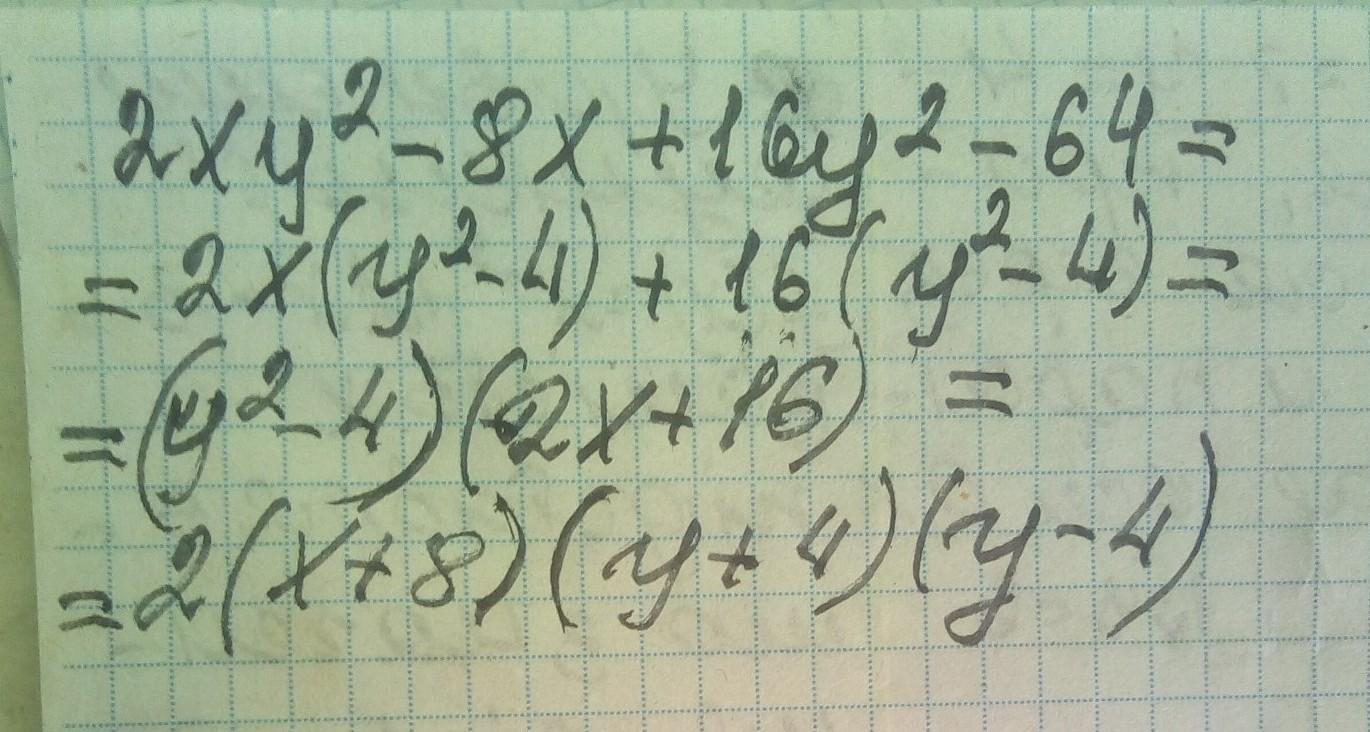 2xy² - 8x + 16y² - 64 =
= 2x(y² - 4) + 16(y² - 4) =
= (y² - 4)(2x + 16) =
= 2(x + 8)(y + 4)(y - 4)